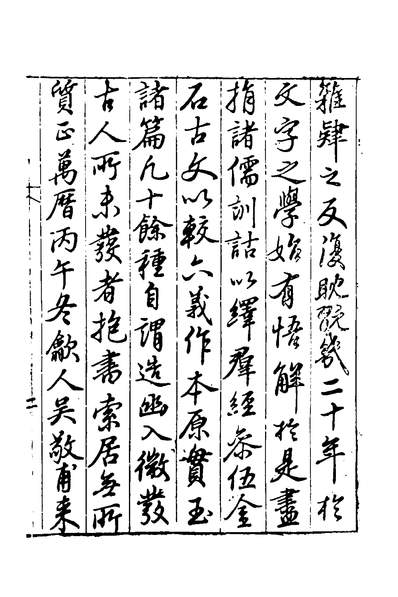 雜肄之反復耽翫幾二十年於
文字之學始有悟解於是盡
捐諸儒訓詁以繹羣經叅伍金
石古文以較六義作本原實玉
諸篇凡十餘種自謂造幽入微發
古人所未發者抱書索居無所
質正萬曆丙午冬歙人吳敬甫来